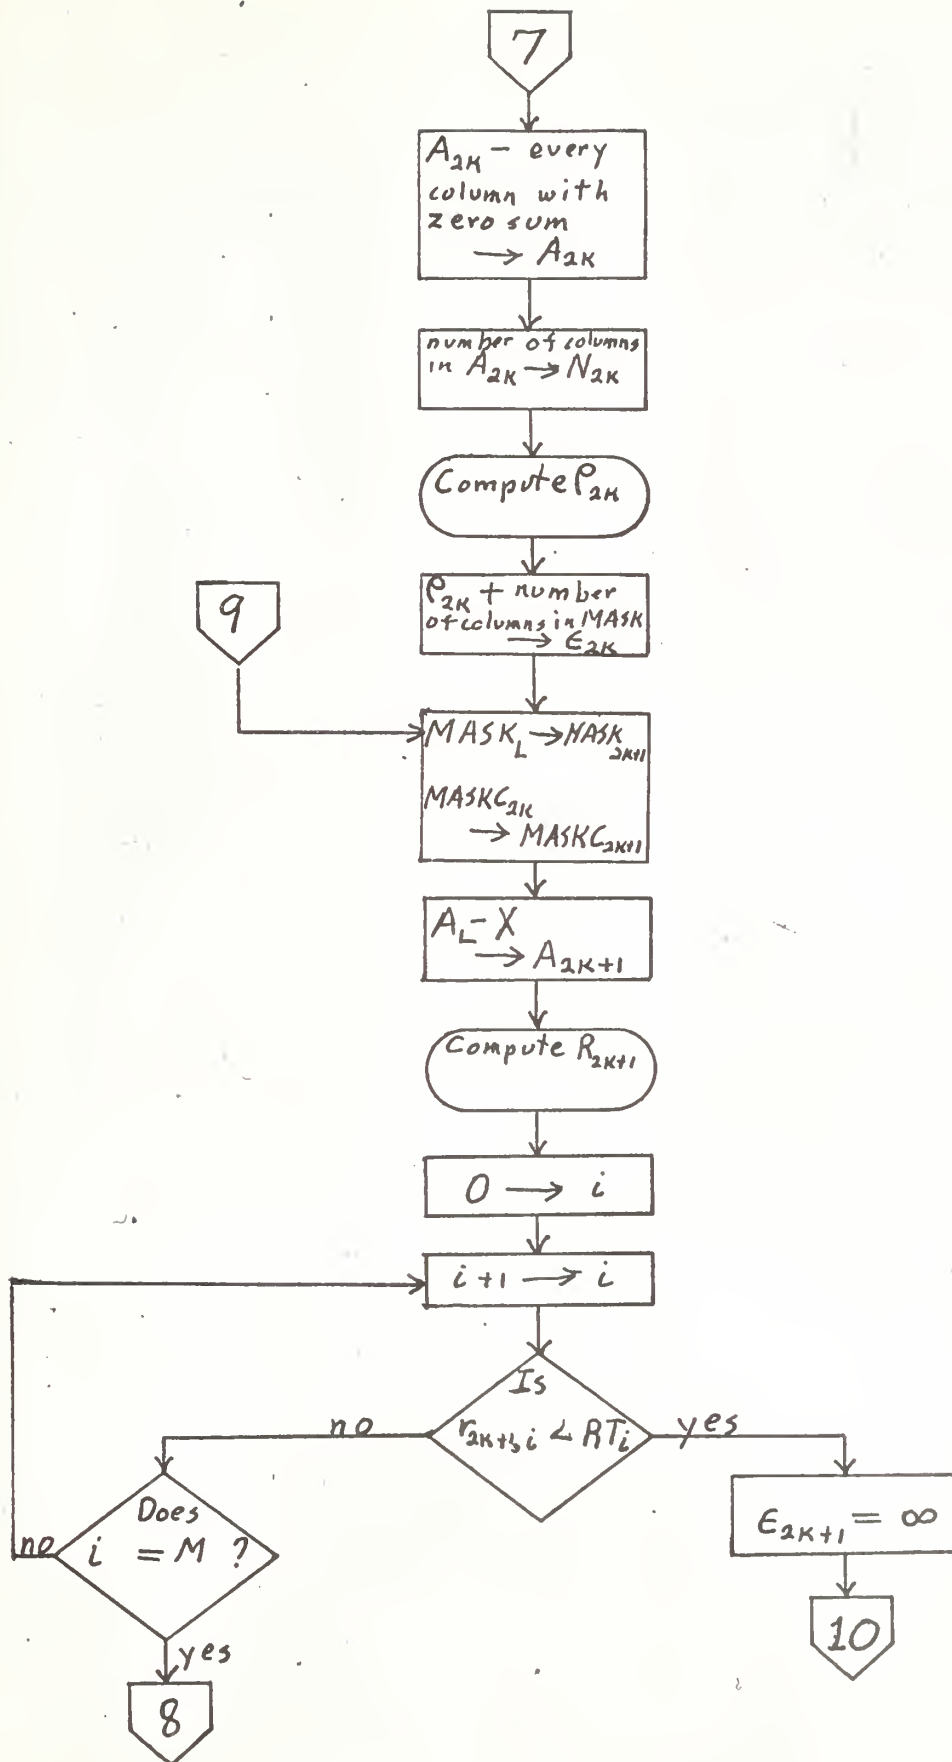 7
A₂ₖ - every
column with
zero sum
→ A₂ₖ
number of columns
in A₂ₖ → N₂ₖ
Compute ρ₂ₖ
9
ρ₂ₖ + number
of columns in MASK
→ ϵ₂ₖ
MASK_L → MASK₂ₖ₊₁
MASKC₂ₖ
→ MASKC₂ₖ₊₁
A_L - X
→ A₂ₖ₊₁
Compute R₂ₖ₊₁
0 → i
i +1 → i
Is
no
r₂ₖ₊₁,ᵢ < RTᵢ
yes
Does
no
i = M ?
ϵ₂ₖ₊₁ = ∞
yes
10
8